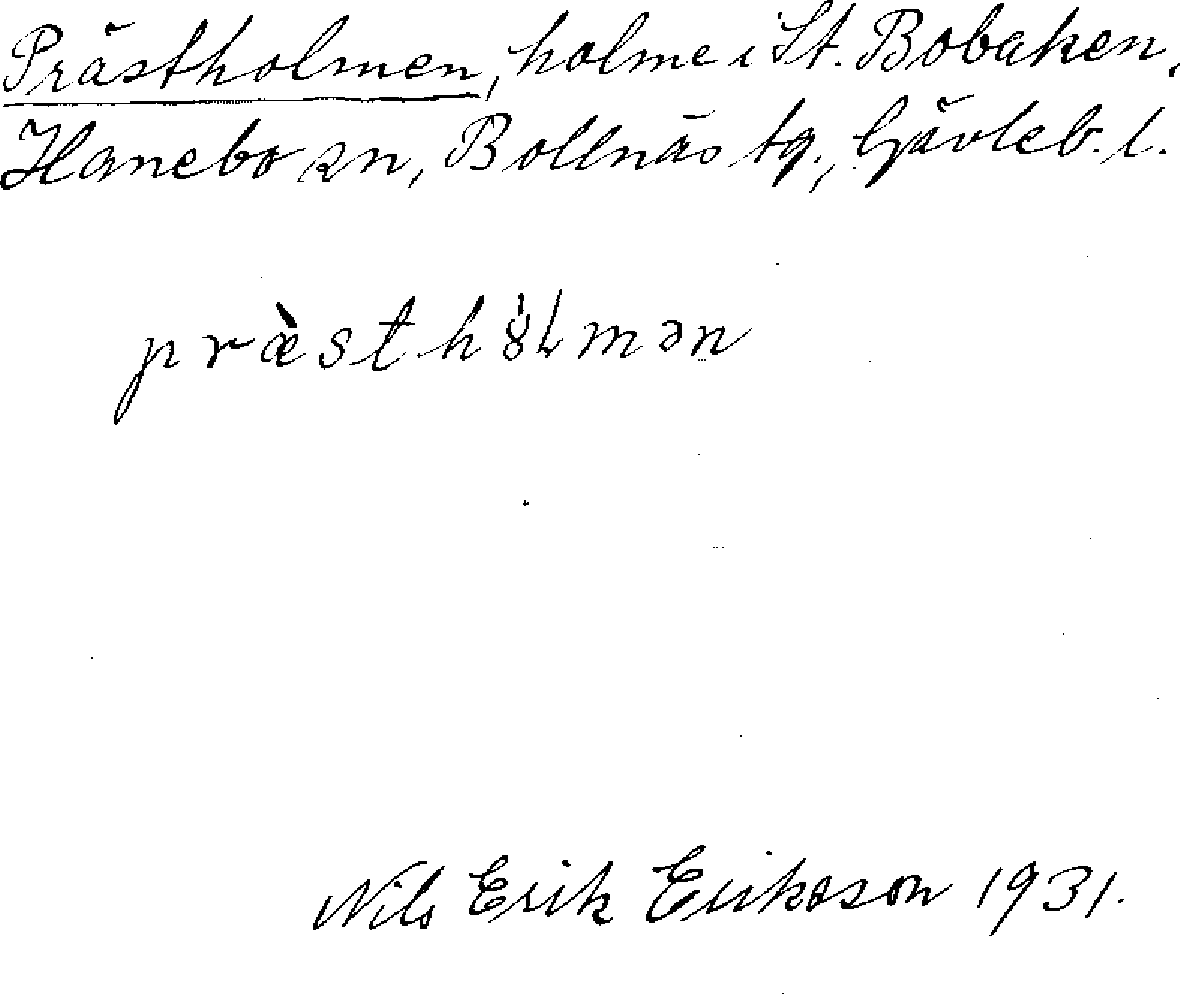 Prästholmen, holme i St. Bobaken,
Hanebo sn, Bollnäs tg., Gävleb. l.
præ̀sth8̍Lmən
Nils Erik Eriksson 1931.